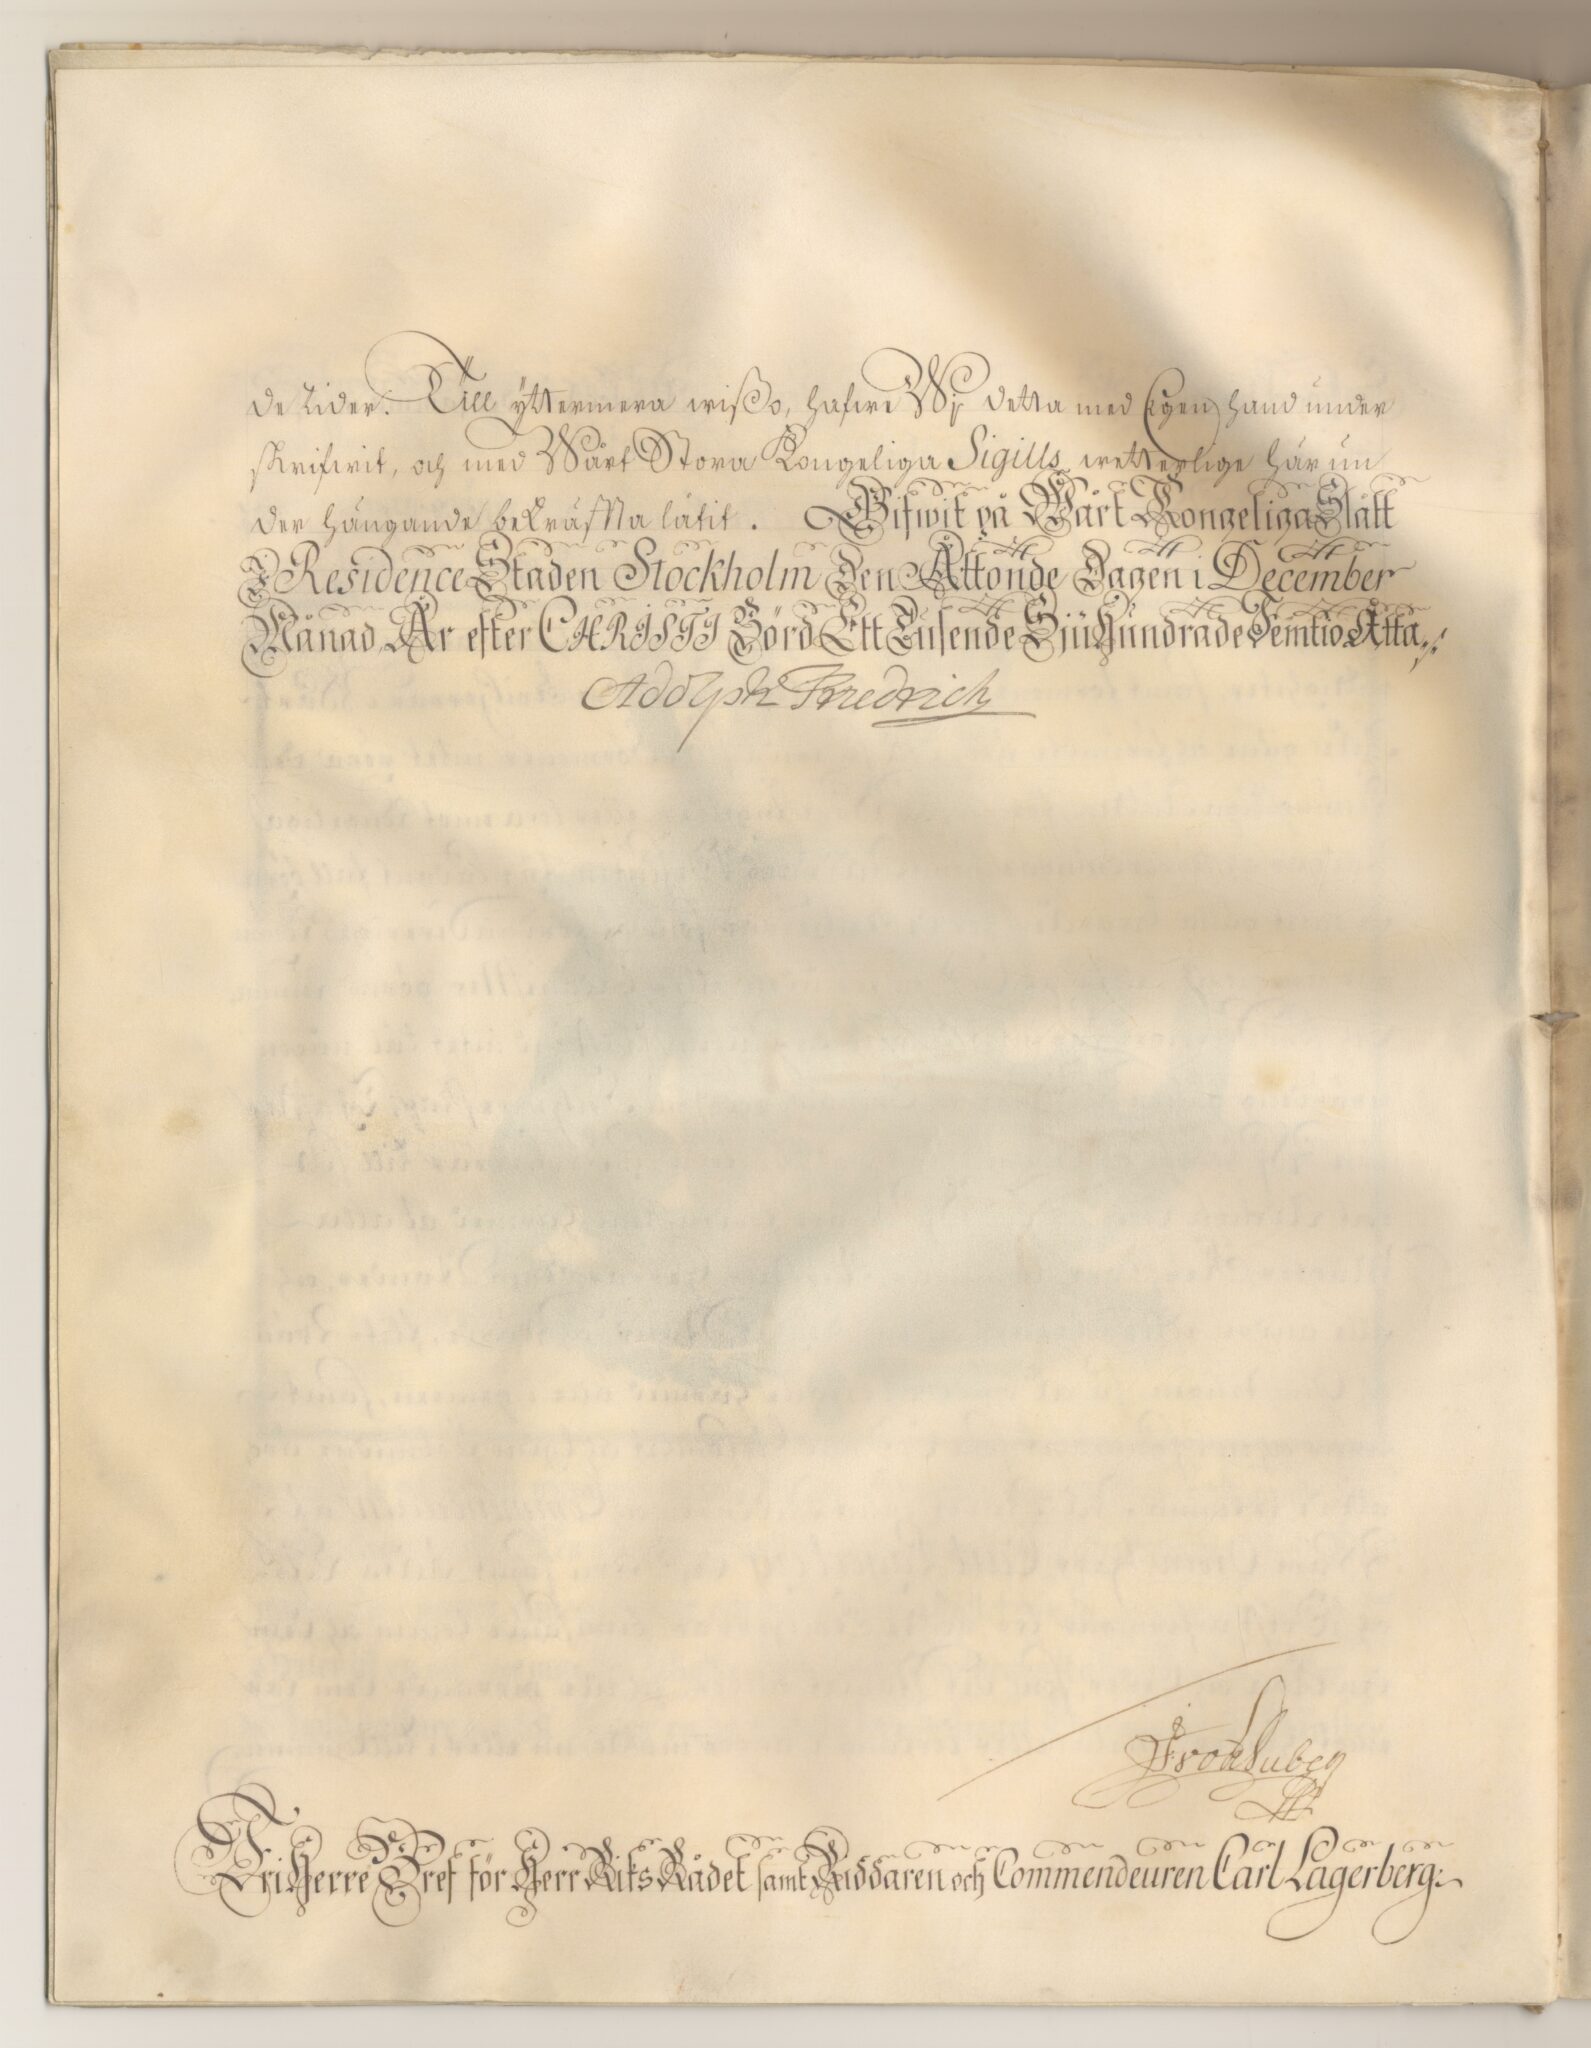 de tider. Till yttermera wißo, hafwe Wj detta med Egen hand under
skrifwit, och med Wårt Stora Kongeliga Sigills wetterlige här un
der hängande bekräffta låtit. Gifwit på Wårt Kongeliga Slått
I Residence Staden Stockholm den Åttonde Dagen i December
Månad, År efter CHRISTI Börd Ett Tusende Sjuhundrade Femtio Åtta.
Adolph Friedrich
FriHerre Bref för Herr Riks Rådet samt Riddaren och Commendeuren Carl Lagerberg.